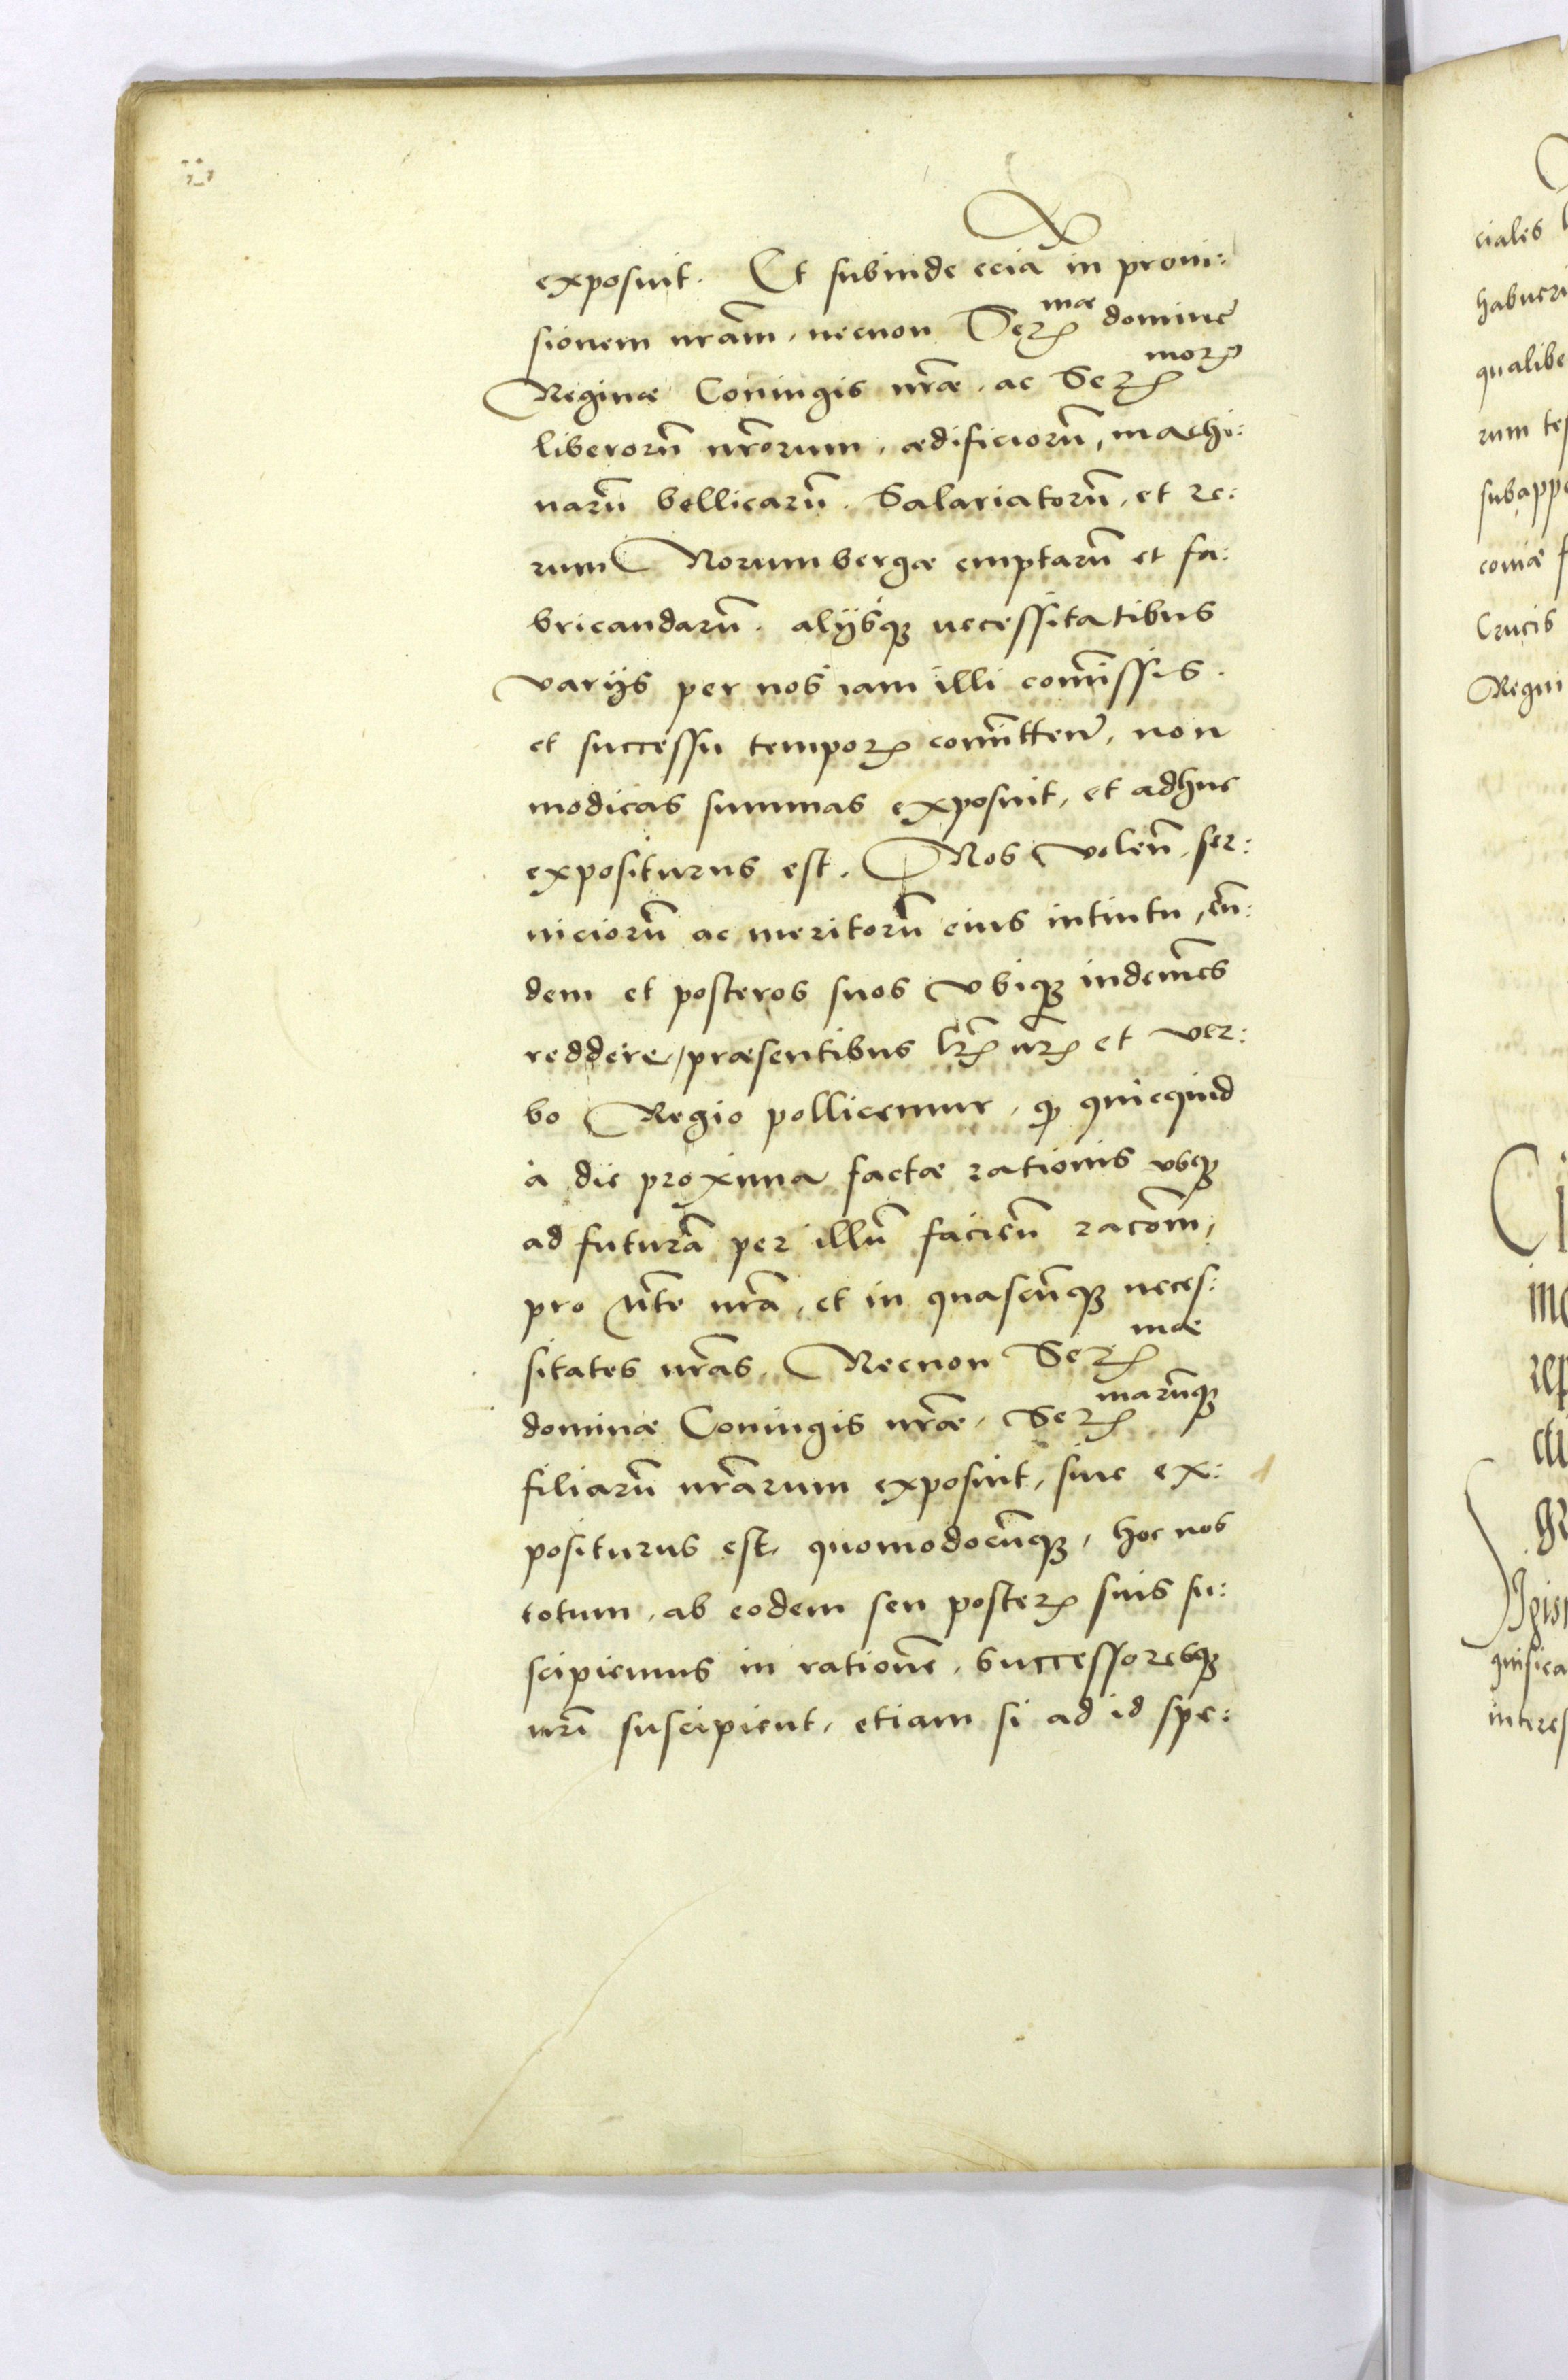 exposuit. Et subinde ecia in proui:
sionem nram, necnon Ser mae domine
Reginae Coniugis nrae, ac Ser mor
liberorū nrorum, aedificiorū, machi:
narū bellicarū. Salariatorū, et re:
rum Norumbergae emptarū et fa:
bricandarū. alijsq; necessitatibus
varijs per nos iam illi comissis.
et successu tempor comitten, non
modicas summas exposuit, et adhuc
expositurus est. Nos volen, ser:
uiciorū ac meritorū eius intuitu, eū:
dem et posteros suos vbiq; indemes
reddere, praesentibus lr nr et ver:
bo Regio pollicemur, q quicquid
à die proxima factae rationis vsq;
ad futurā per illū faciēn racōem,
pro nra, et in quascūq; neces:
sitates nras, Necnon Ser mae
dominae Coniugis nrae, Ser marūq;
filiarū nrarum exposuit, siue ex:
positurus est, quomodocūq;, hoc nos
totum, ab eodem seu poster suis su:
scipiemus in rationē, successoresq;
nri suscipient, etiam si ad id spe:
ciales
habueri
qualibe
rum tes
subapp
coniae
Crucis
Regni
quifica
interes